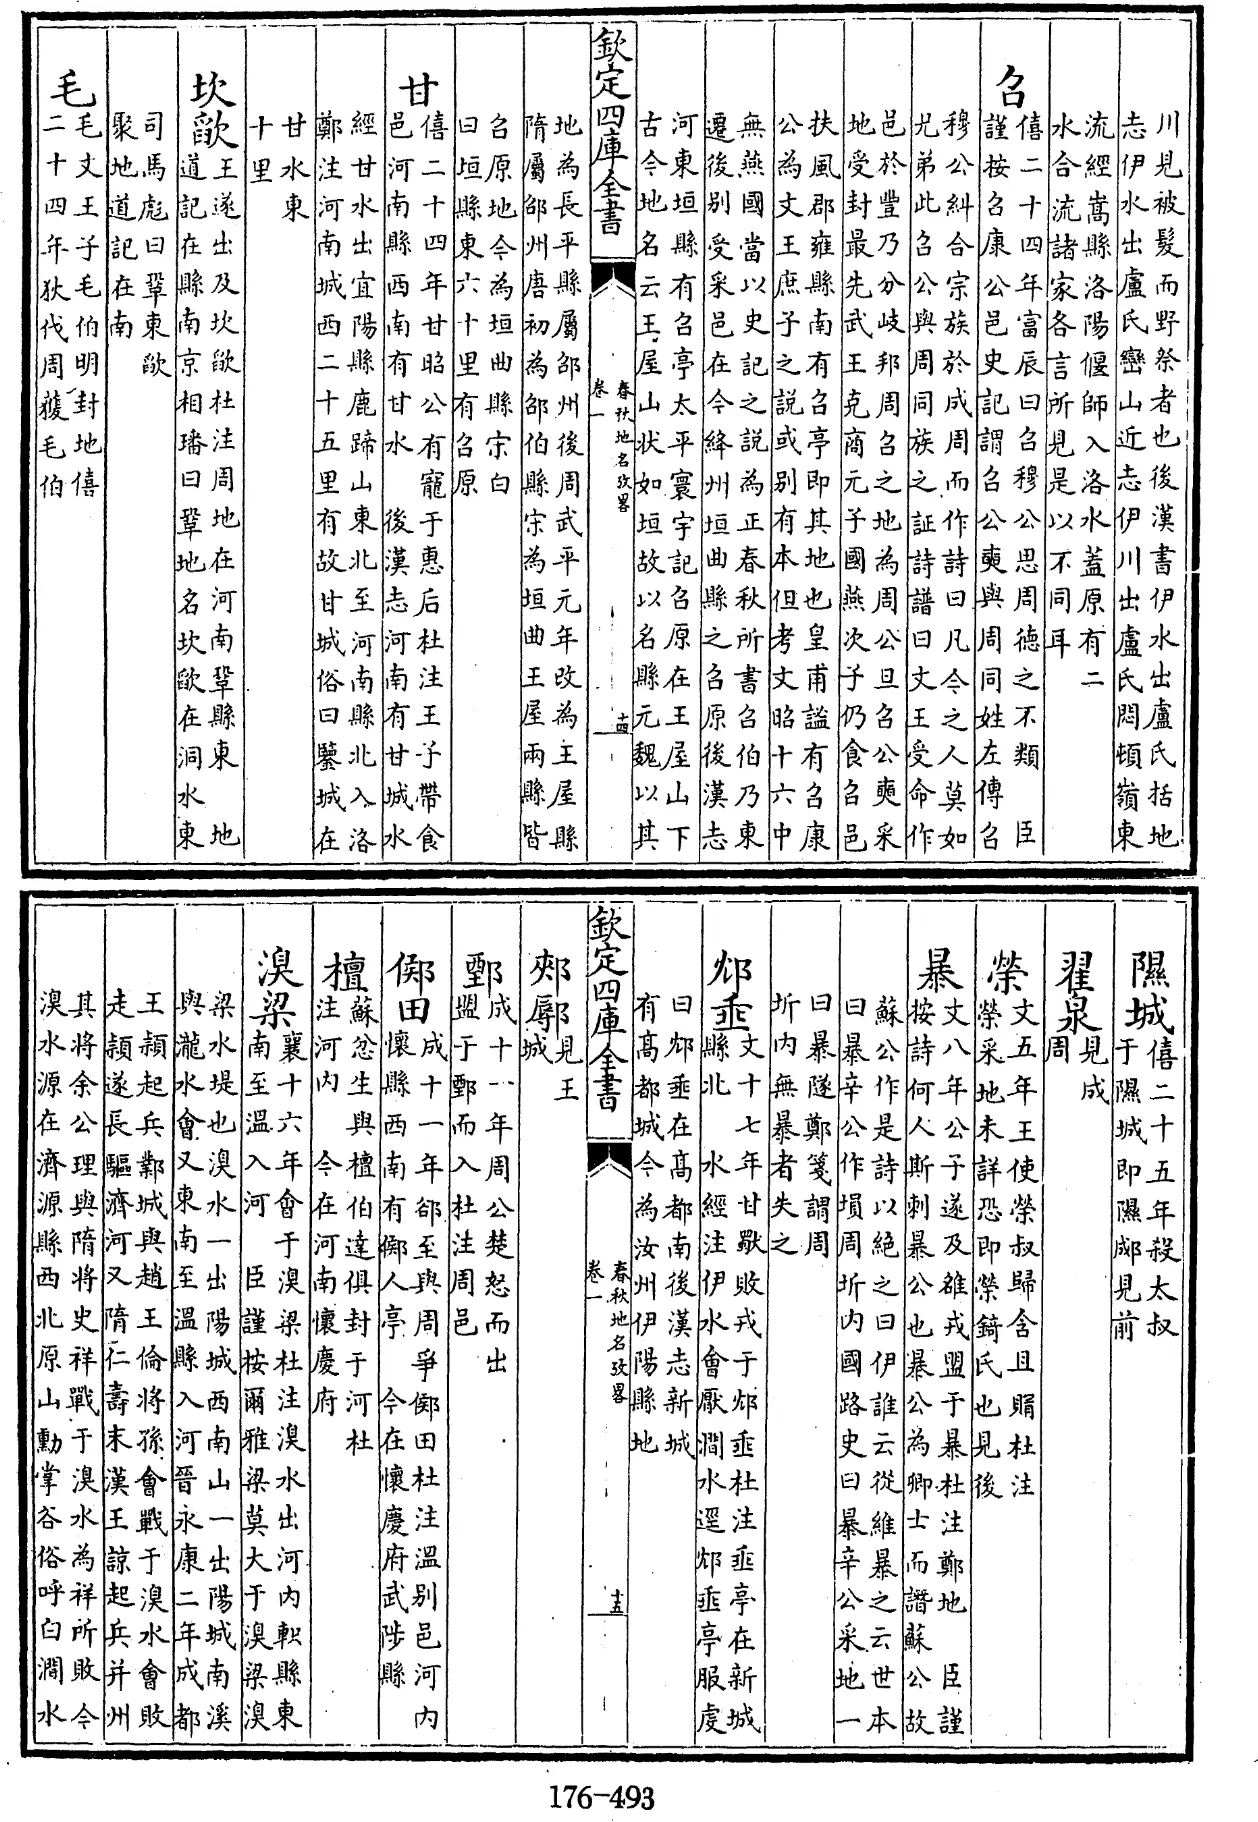 川見被髮而野祭者也後漢書伊水出盧氏括地
志伊水出盧氏巒山近志伊川出盧氏悶頓嶺東
流經嵩縣洛陽偃師入洛水蓋原有二
水合流諸家各言所見是以不同耳
召
僖二十四年富辰曰召穆公思周德之不類 臣
謹按召康公邑史記謂召公奭與周同姓左傳召
穆公糾合宗族於成周而作詩曰凡今之人莫如
兄弟此召公與周同族之証詩譜曰文王受命作
邑於豐乃分岐邦周召之地為周公旦召公奭采
地受封最先武王克商元子國燕次子仍食召邑
扶風郡雍縣南有召亭即其地也皇甫謐有召康
公為文王庶子之説或别有本但考文昭十六中
無燕國當以史記之説為正春秋所書召伯乃東
遷後别受采邑在今絳州垣曲縣之召原後漢志
河東垣縣有召亭太平寰宇記召原在王屋山下
古今地名云王屋山状如垣故以名縣元魏以其
欽定四庫全書
春秋地名攷畧
卷一
十四
地為長平縣屬邵州後周武平元年改為王屋縣
隋屬邵州唐初為邵伯縣宋為垣曲王屋兩縣皆
召原地今為垣曲縣宋白
曰垣縣東六十里有召原
甘
僖二十四年甘昭公有寵于惠后杜注王子帶食
邑河南縣西南有甘水 後漢志河南有甘城水
經甘水出宜陽縣鹿蹄山東北至河南縣北入洛
鄭注河南城西二十五里有故甘城俗曰鑒城在
甘水東
十里
坎欿
王遂出及坎欿杜注周地在河南鞏縣東 地
道記在縣南京相璠曰鞏地名坎欿在洞水東
司馬彪曰鞏東欿
聚地道記在南
毛
毛文王子毛伯明封地僖
二十四年狄伐周獲毛伯
隰城
僖二十五年殺太叔
于隰城即隰郕見前
翟泉
見成
周
榮
文五年王使榮叔歸含且賵杜注
榮采地未詳恐即榮錡氏也見後
暴
文八年公子遂及雒戎盟于暴杜注鄭地 臣謹
按詩何人斯刺暴公也暴公為卿士而譖蘇公故
蘇公作是詩以絶之曰伊誰云從維暴之云世本
曰暴辛公作塤周圻内國路史曰暴辛公采地一
曰暴隧鄭箋謂周
圻内無暴者失之
邥垂
文十七年甘歜敗戎于邥垂杜注垂亭在新城
縣北 水經注伊水會厭澗水逕邥垂亭服虔
曰邥垂在髙都南後漢志新城
有髙都城今為汝州伊陽縣地
欽定四庫全書
春秋地名攷畧
卷一
十五
郟鄏
見王
城
鄄
成十一年周公楚怒而出
盟于鄄而入杜注周邑
鄇田
成十一年郤至與周爭鄇田杜注溫别邑河内
懷縣西南有鄇人亭 今在懷慶府武陟縣
檀
蘇忿生與檀伯達俱封于河杜
注河内 今在河南懷慶府
湨梁
襄十六年會于湨梁杜注湨水出河内軹縣東
南至溫入河 臣謹按爾雅梁莫大于湨梁湨
梁水堤也湨水一出陽城西南山一出陽城南溪
與瀧水會又東南至溫縣入河晉永康二年成都
王穎起兵鄴城與趙王倫將孫會戰于湨水會敗
走頴遂長驅濟河又隋仁壽末漢王諒起兵并州
其將余公理與隋將史祥戰于湨水為祥所敗今
湨水源在濟源縣西北原山勳掌谷俗呼白澗水
176-493